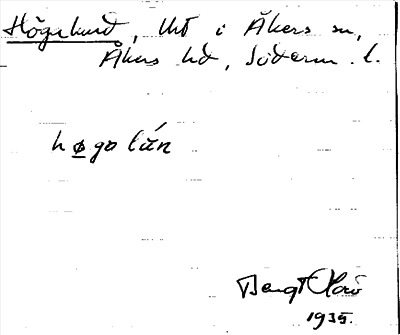 Högelund, Uto i Åkers sn,
Åkers hd, Söderm. l.
høgalún
Bengt
1935.